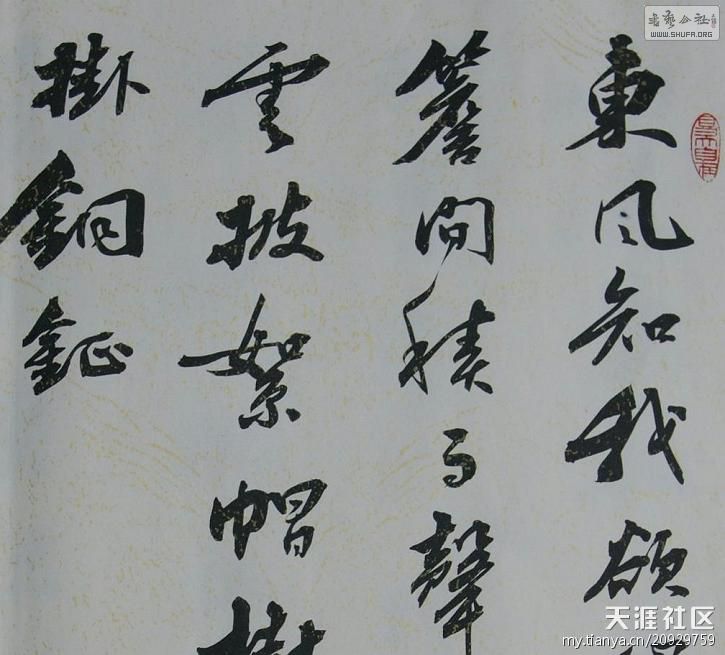 東風知我欲
簷間積雨聲
雲披絮帽樹
掛銅鉦
WWW.SHUFA.ORG
天涯社区
my.tianya.cn/20929759